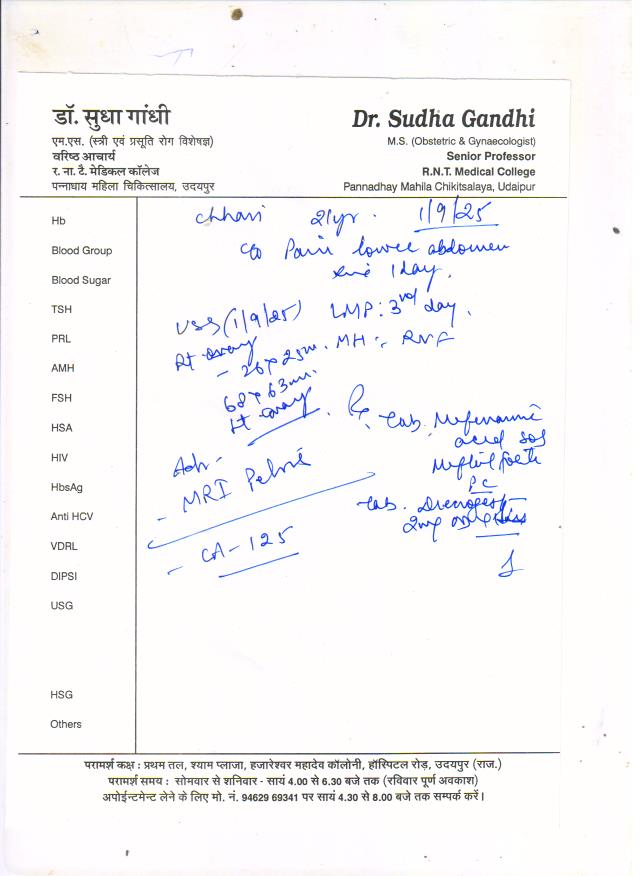 डॉ. सुधा गांधी
एम.एस. (स्त्री एवं प्रसूति रोग विशेषज्ञ)
वरिष्ठ आचार्य
र. ना. टै. मेडिकल कॉलेज
पन्नाधाय महिला चिकित्सालय, उदयपुर
Dr. Sudha Gandhi
M.S. (Obstetric & Gynaecologist)
Senior Professor
R.N.T. Medical College
Pannadhay Mahila Chikitsalaya, Udaipur
Hb
Blood Group
Blood Sugar
TSH
PRL
AMH
FSH
HSA
HIV
HbsAg
Anti HCV
VDRL
DIPSI
USG
HSG
Others
Chhavi 21yr. 1/9/25
c/o Pain lower abdomen
1 day.
USS (1/9/25) LMP: 3rd day.
Rt ovary MH :-
- 26 x 25 mm.
68 x 63 mm.
Lt ovary
Rx Tab. Mefenamic
acid sos
Meftal forte
PC
Adv -
- MRI Pelvis
Tab. Dienogest
2mg
- CA-125
परामर्श कक्ष : प्रथम तल, श्याम प्लाजा, हजारेश्वर महादेव कॉलोनी, हॉस्पिटल रोड़, उदयपुर (राज.)
परामर्श समय : सोमवार से शनिवार - सायं 4.00 से 6.30 बजे तक (रविवार पूर्ण अवकाश)
अपोईन्टमेन्ट लेने के लिए मो. नं. 94629 69341 पर सायं 4.30 से 8.00 बजे तक सम्पर्क करें।